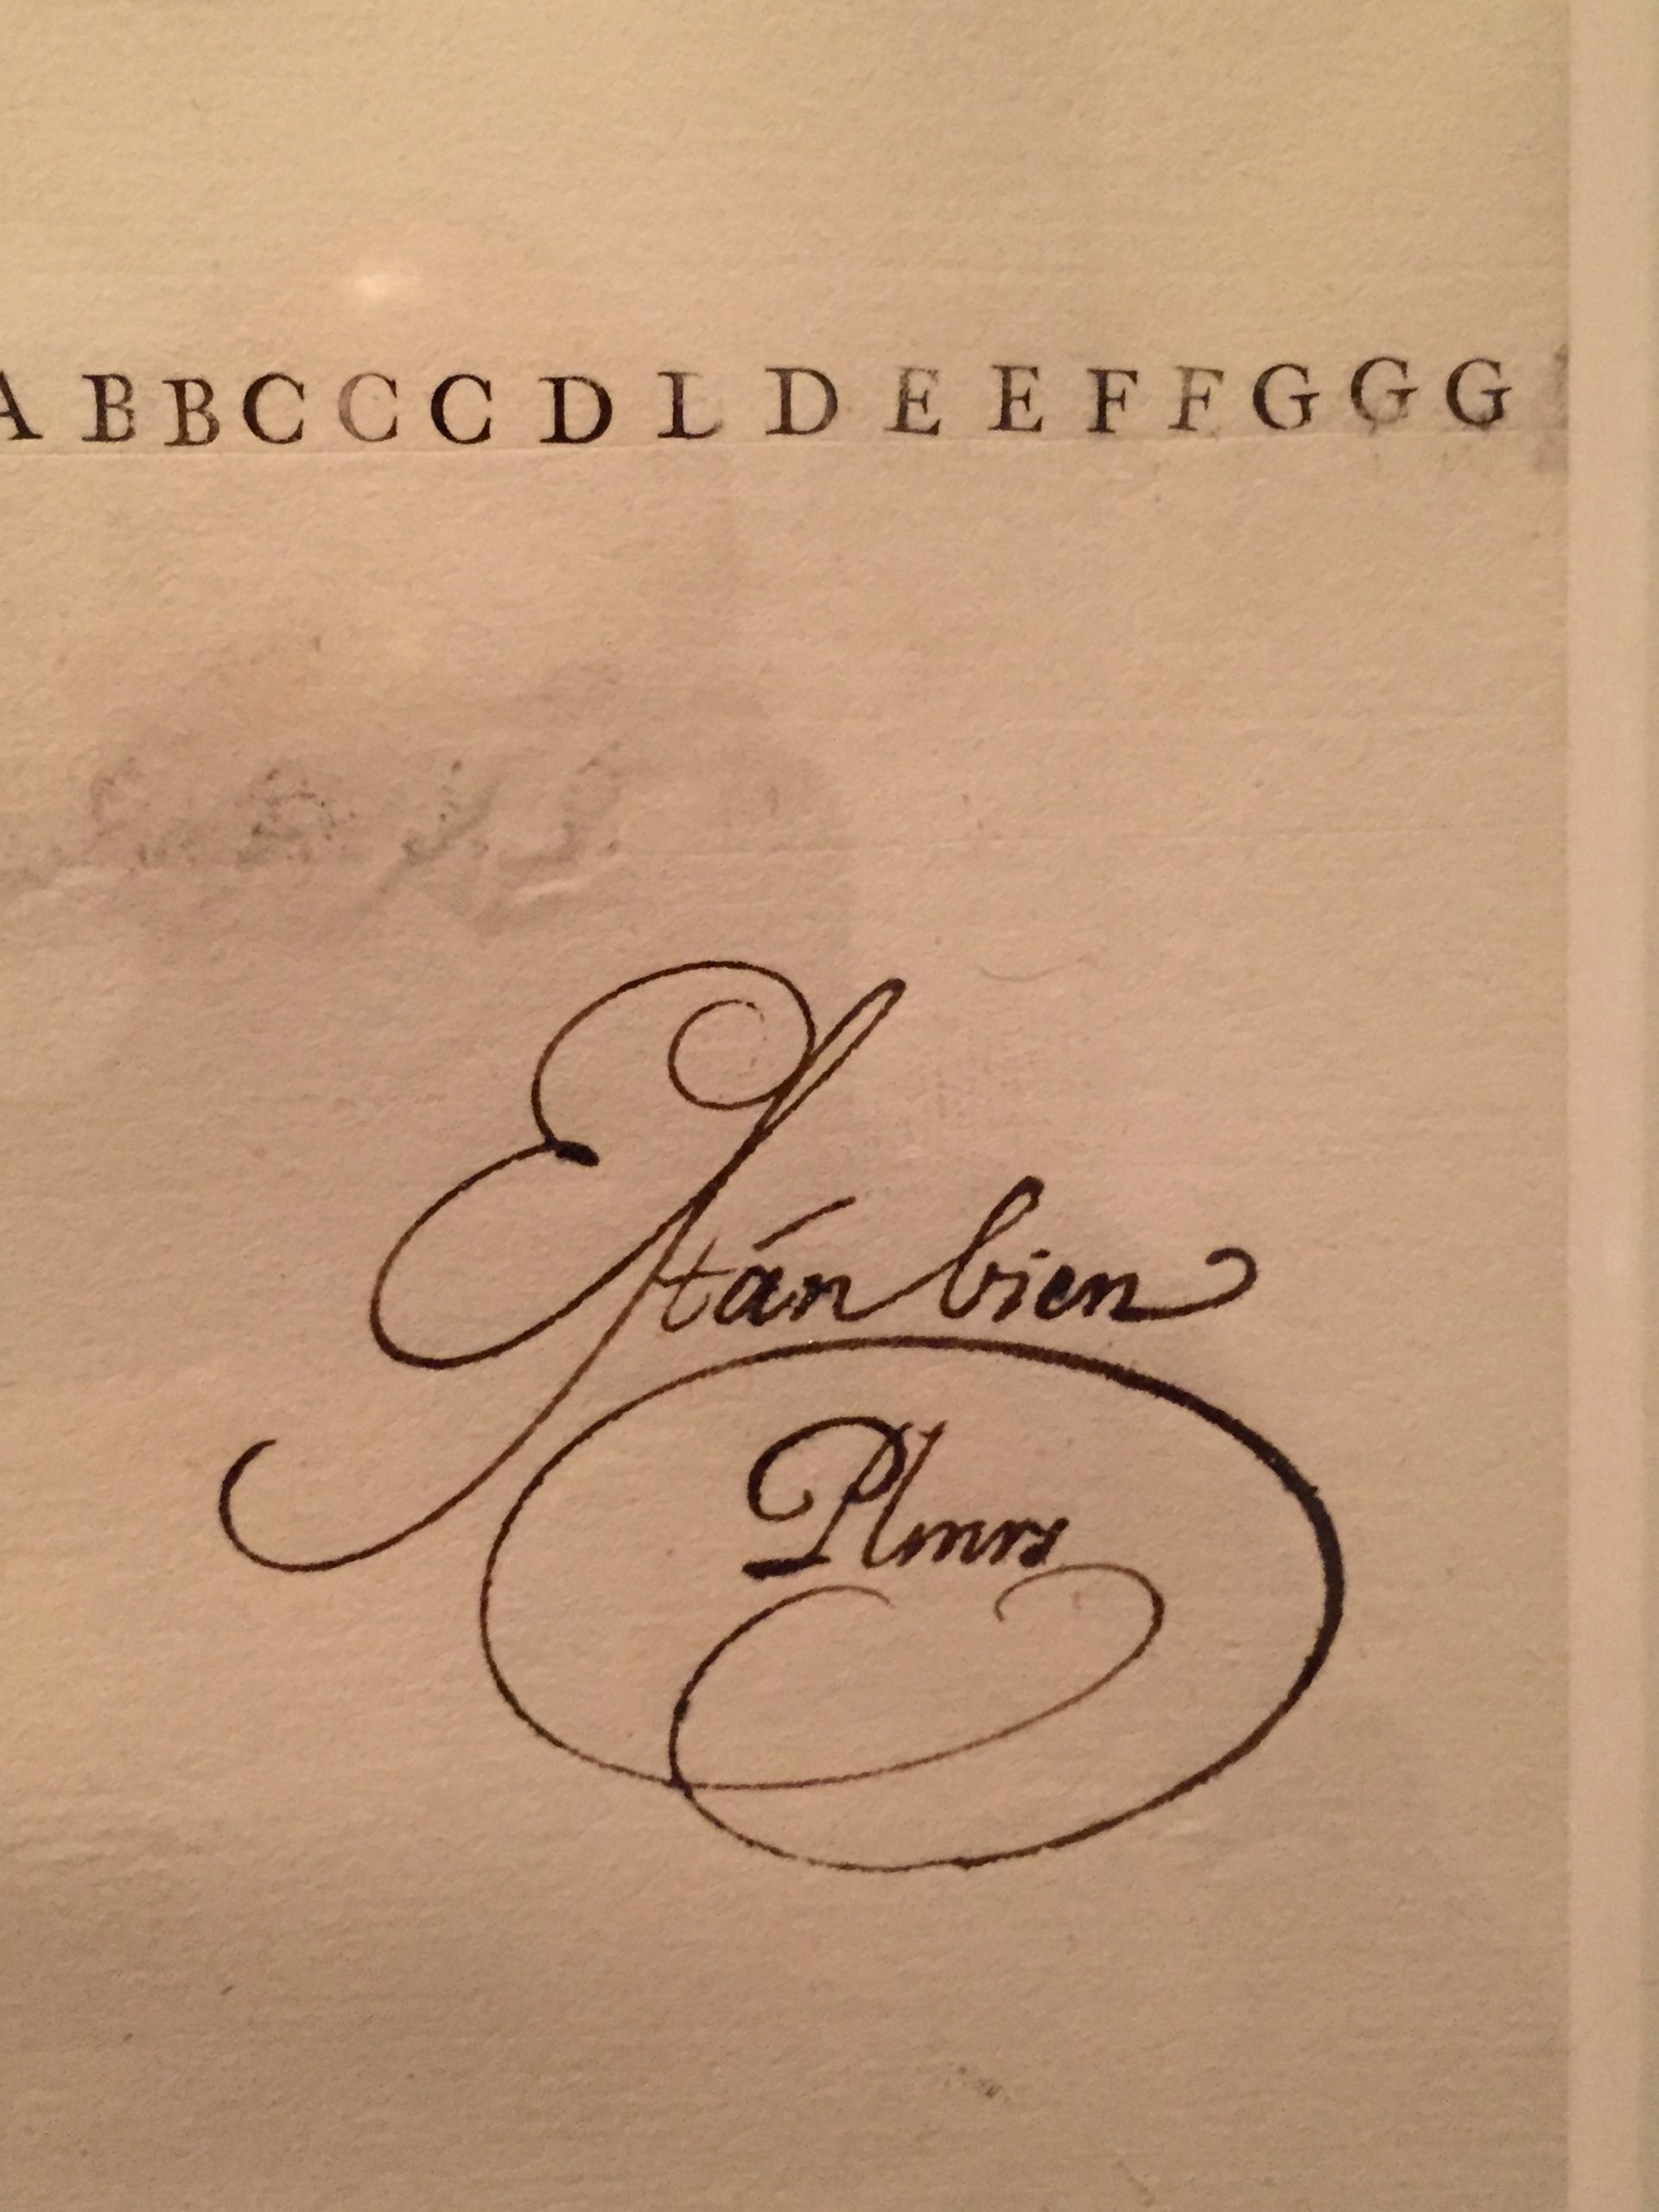 A B B C C C D L D E E F F G G G
Están bien
Plmrs